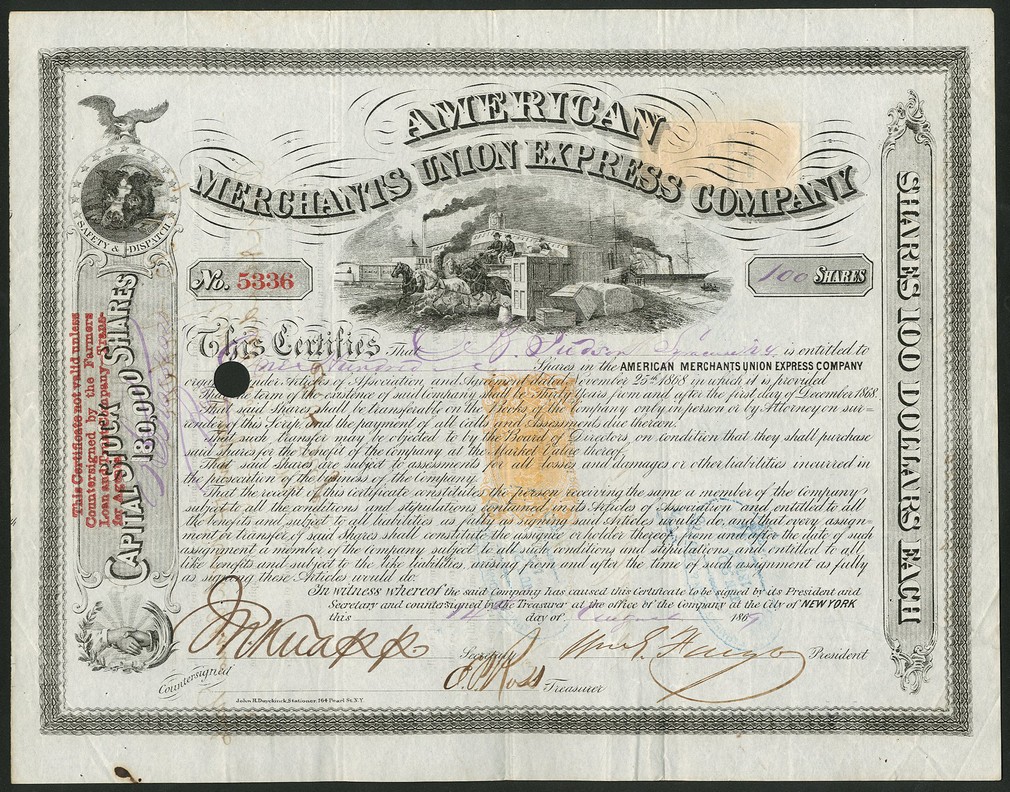 AMERICAN
MERCHANTS UNION EXPRESS COMPANY
SAFETY & DISPATCH
No. 5336
100 SHARES
CAPITAL STOCK 180,000 SHARES
This Certificate not valid unless
Countersigned by the Farmers
Loan and Trust Company Trans-
fer Agents
SHARES 100 DOLLARS EACH
This Certifies That Syracuse N.Y. is entitled to
One Hundred Shares in the AMERICAN MERCHANTS UNION EXPRESS COMPANY
under Articles of Association and Agreement dated November 25th 1868 in which it is provided
That the term of the existence of said Company shall be Thirty Years from and after the first day of December 1868.
That said Shares shall be transferable on the Books of the Company only in person or by Attorney on sur-
render of this Scrip and the payment of all Calls and Assessments due thereon.
That such transfer may be objected to by the Board of Directors, on condition that they shall purchase
said Shares for the benefit of the Company at the Market Value thereof.
That said Shares are subject to assessments for all losses and damages or other liabilities incurred in
the prosecution of the business of the Company.
That the receipt of this certificate constitutes the person receiving the same a member of the Company,
subject to all the conditions and stipulations contained in its Articles of Association and entitled to all
the benefits and subject to all liabilities as fully as said Articles would do, and that every assign-
ment or transfer of said Shares shall constitute the assignee or holder thereof from and after the date of such
assignment a member of the Company subject to all such conditions and stipulations and entitled to all
like benefits and subject to the like liabilities, arising from and after the time of such assignment as fully
as signing these Articles would do.
In witness whereof the said Company has caused this Certificate to be signed by its President and
Secretary and countersigned by the Treasurer at the office of the Company at the City of NEW YORK
this day of August 1869
J N Knapp Secretary Wm G. Fargo President
Countersigned E C Ross Treasurer
John H. Duyckinck, Stationer, 164 Pearl St. N.Y.